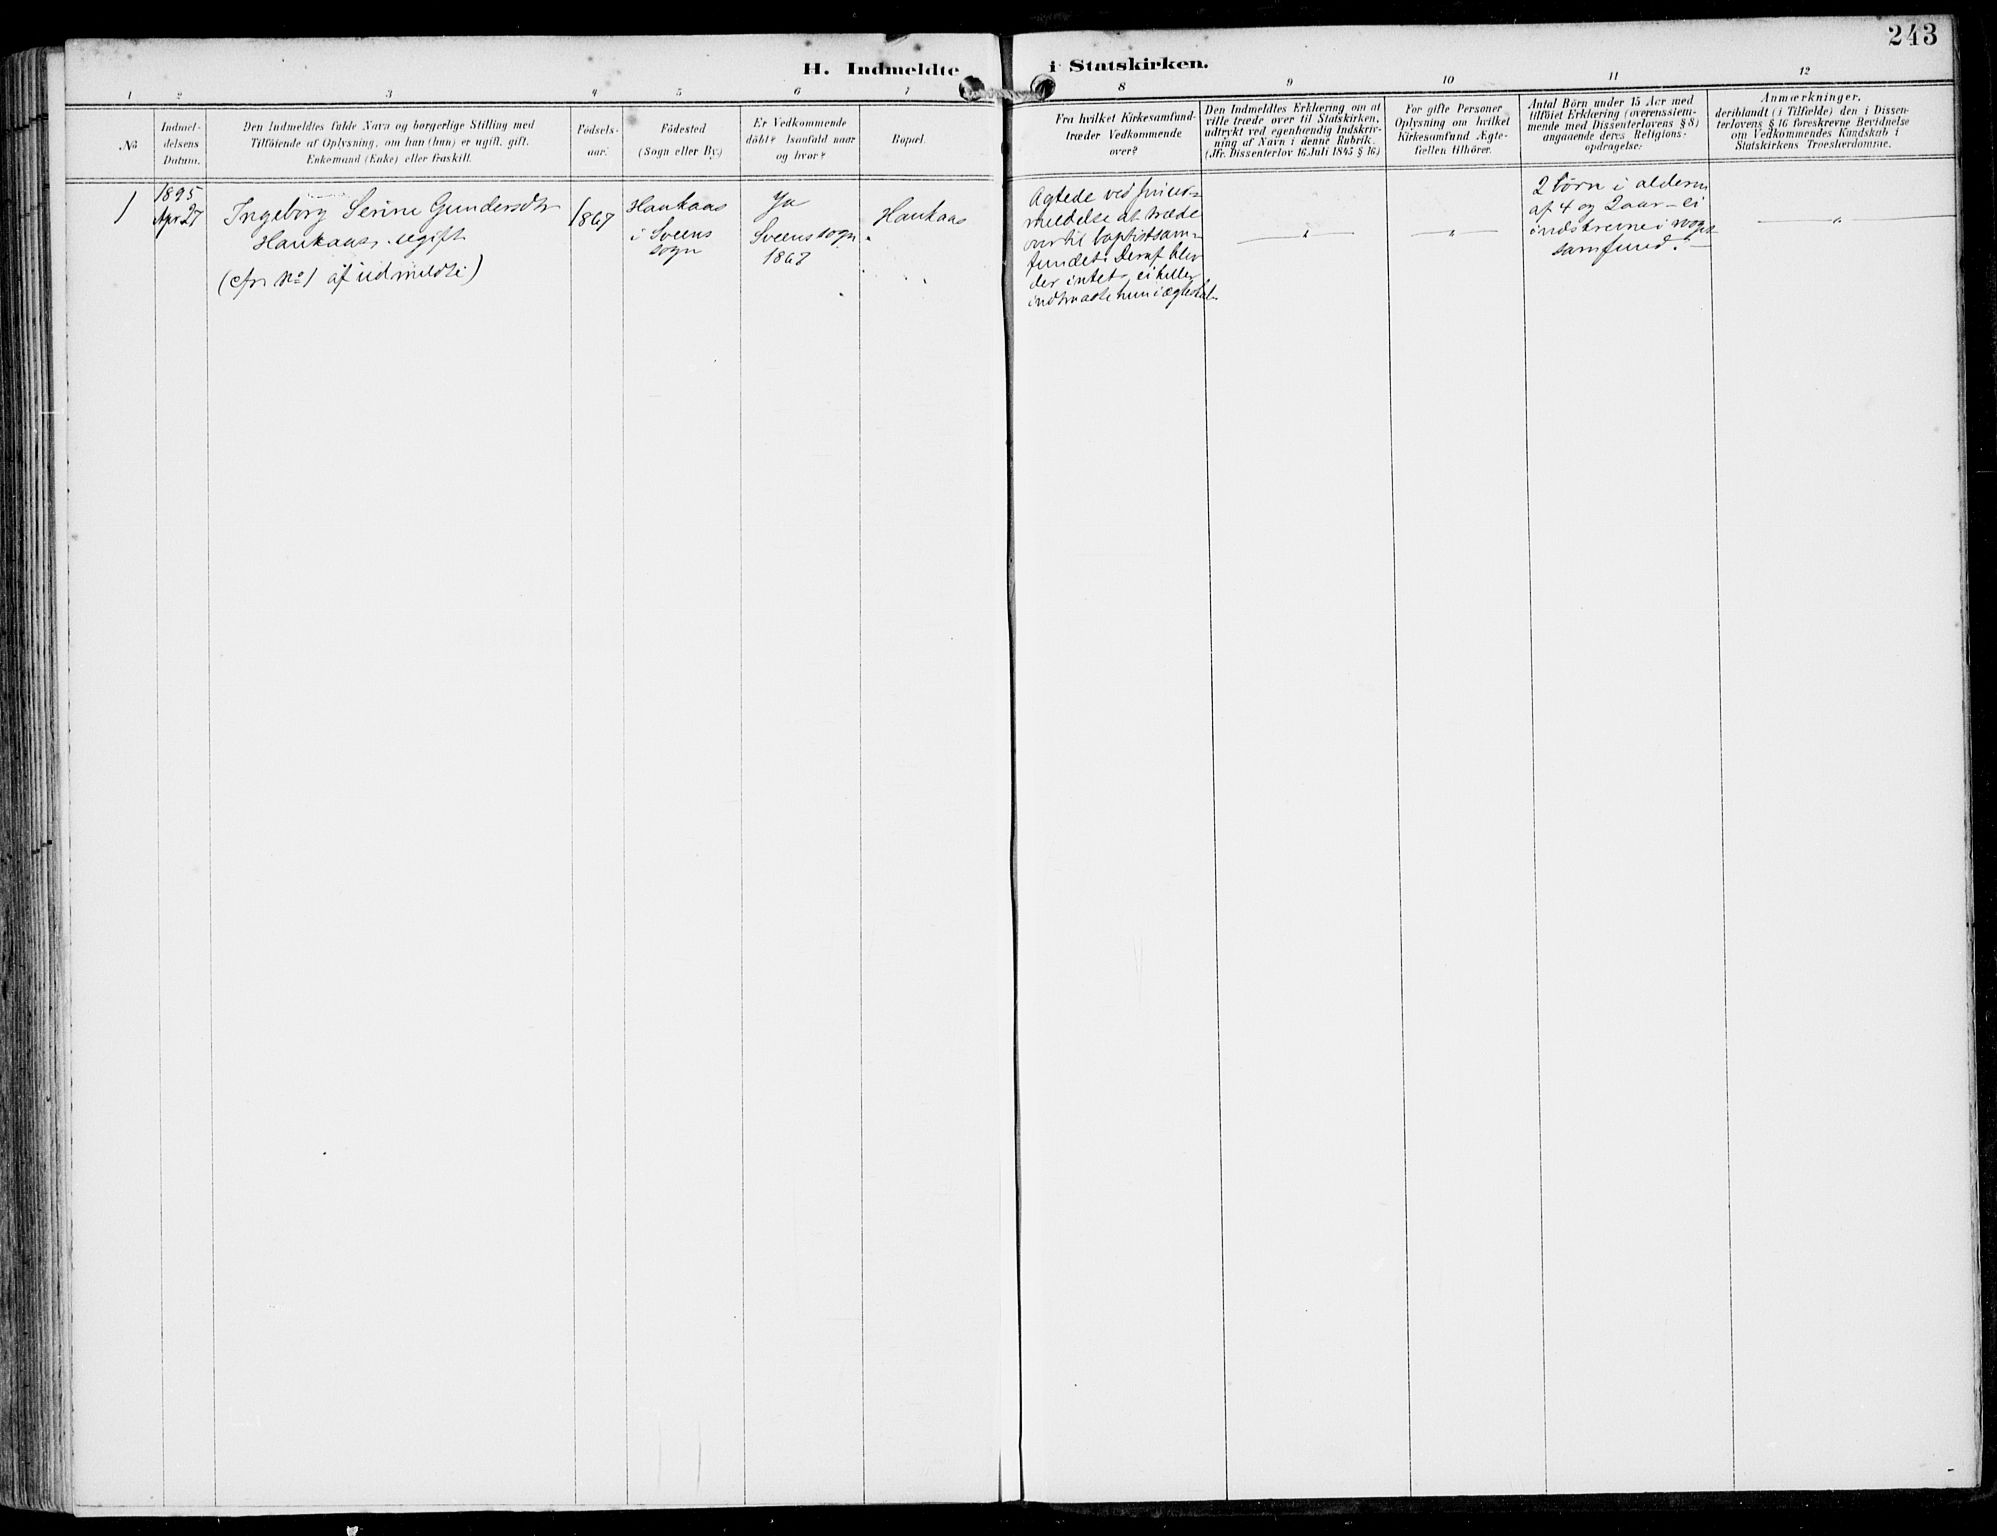 243
H. Indmeldte i Statskirken.
1 2 3 4 5 6 7 8 9 10 11 12
No
Indmel-
delsens
Datum.
Den Indmeldtes fulde Navn og borgerlige Stilling med
Tilföiende af Oplysning, om han (hun) er ugift, gift,
Enkemand (Enke) eller fraskilt.
Födsels-
aar.
Födested
(Sogn eller By.)
Er Vedkommende
döbt? Isaafald naar
og hvor?
Bopæl.
Fra hvilket Kirkesamfund
træder Vedkommende
over?
Den Indmeldtes Erklæring om at
ville træde over til Statskirken,
udtrykt ved egenhændig Indskriv-
ning af Navn i denne Rubrik.
(Jfr. Dissenterlov 16 Juli 1845 § 16)
For gifte Personer
Oplysning om hvilket
Kirkesamfund Ægte-
fællen tilhörer.
Antal Börn under 15 Aar med
tilföiet Erklæring (overensstem-
mende med Dissenterlovens § 8)
angaaende deres Religions-
opdragelse.
Anmærkninger,
deriblandt (i Tilfælde) den i Dissen-
terlovens § 16 foreskrevne Bevidnelse
om Vedkommendes Kundskab i
Statskirkens Troeslærdomme.
1
1895
Apr 27
Ingeborg Serine Gundersdtr
Haukaas, ugift
(cfr. No 1 af udmeldte)
1867
Haukaas
i Sveens
sogn
Ja
Sveens sogn
1867
Haukaas
Agtede ved
meldelse at træde
over til baptistsam-
fundet. Deraf blev
der intet, ei heller
indtraadte hun i
"
"
2 børn i alderen
af 4 og 2 aar – ei
indskrevne i noget
samfund.
"